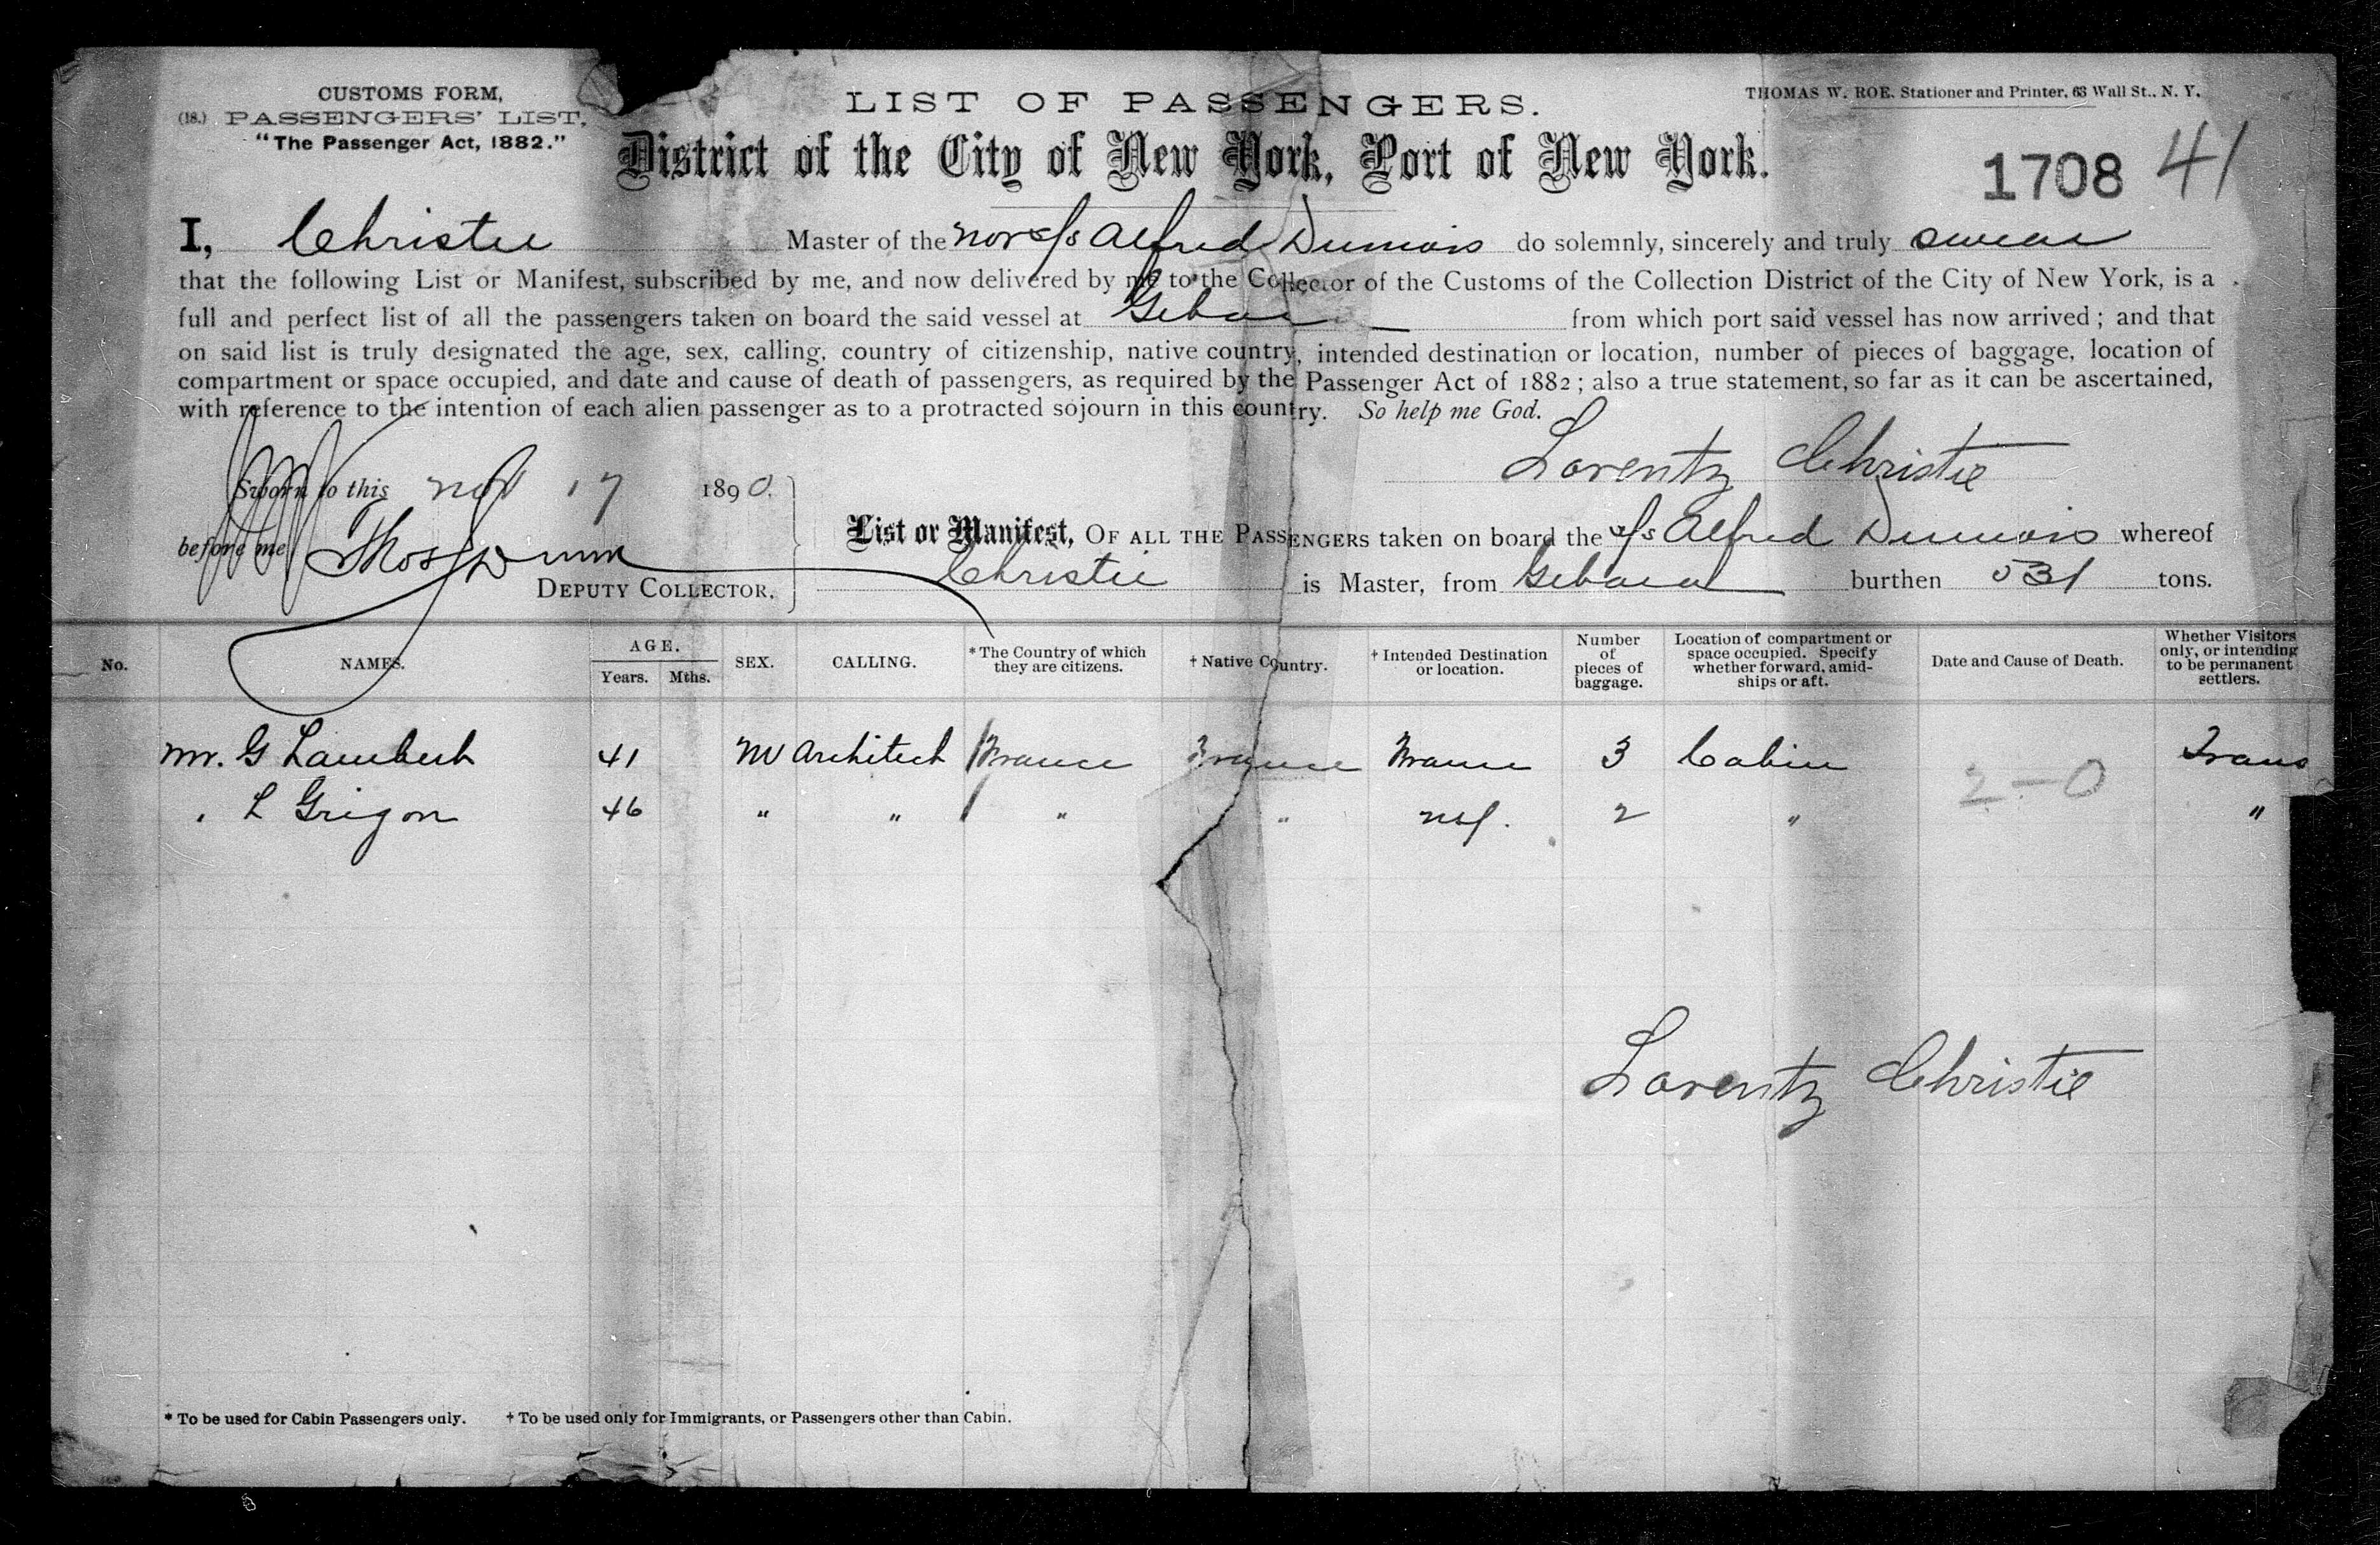 CUSTOMS FORM,
(18.) PASSENGERS' LIST,
"The Passenger Act, 1882."
LIST OF PASSENGERS.
THOMAS W. ROE, Stationer and Printer, 63 Wall St., N. Y.
District of the City of New York, Port of New York.
1708 41
I, Christie Master of the Nor S/S Alfred Dumois do solemnly, sincerely and truly swear
that the following List or Manifest, subscribed by me, and now delivered by me to the Collector of the Customs of the Collection District of the City of New York, is a
full and perfect list of all the passengers taken on board the said vessel at Gebara from which port said vessel has now arrived; and that
on said list is truly designated the age, sex, calling, country of citizenship, native country, intended destination or location, number of pieces of baggage, location of
compartment or space occupied, and date and cause of death of passengers, as required by the Passenger Act of 1882; also a true statement, so far as it can be ascertained,
with reference to the intention of each alien passenger as to a protracted sojourn in this country. So help me God.
Lorentz Christie
Sworn to this Nov 17 1890.
before me Thos Dunn
DEPUTY COLLECTOR.
List or Manifest, OF ALL THE PASSENGERS taken on board the S/S Alfred Dumois whereof
Christie is Master, from Gebara burthen 531 tons.
No. NAMES. AGE. Years. Mths. SEX. CALLING. * The Country of which they are citizens. † Native Country. † Intended Destination or location. Number of pieces of baggage. Location of compartment or space occupied. Specify whether forward, amidships or aft. Date and Cause of Death. Whether Visitors only, or intending to be permanent settlers.
Mr. G Lambert 41 M Architect France France France 3 Cabin 2-0 Trans
" L Grigon 46 " " " " 2 " "
Lorentz Christie
* To be used for Cabin Passengers only. † To be used only for Immigrants, or Passengers other than Cabin.